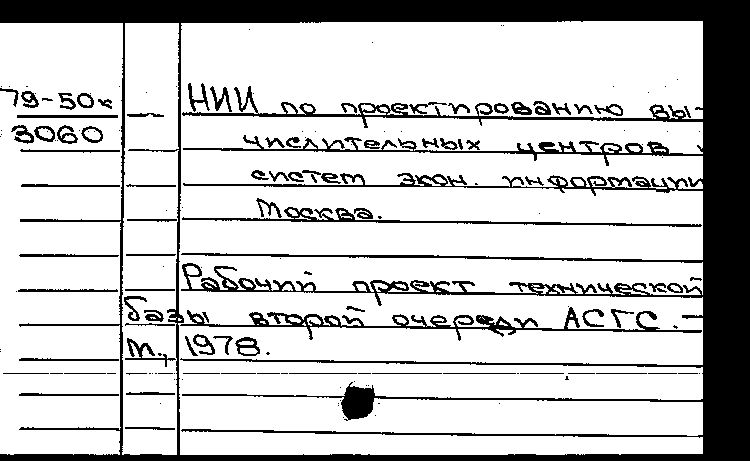 79-50к НИИ по проектированию вы-
3060 числительных центров и
систем экон. информации
Москва.
Рабочий проект технической
базы второй очереди АСГС. –
М., 1978.